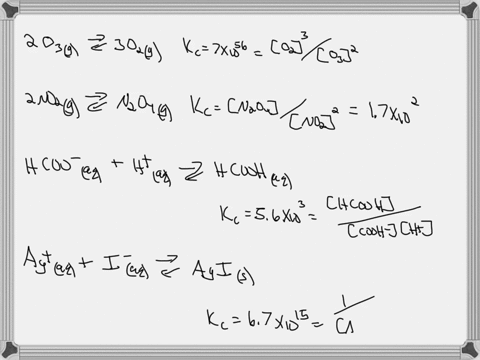 2O₃(g) ⇌ 3O₂(g) Kc = 7x10⁵⁶ = [O₂]³/[O₃]²
2NO₂(g) ⇌ N₂O₄(g) Kc = [N₂O₄]/[NO₂]² = 1.7x10²
HCOO⁻(aq) + H⁺(aq) ⇌ HCOOH(aq)
Kc = 5.6x10³ = [HCOOH]/[COOH⁻][H⁺]
Ag⁺(aq) + I⁻(aq) ⇌ AgI(s)
Kc = 6.7x10¹⁵ = 1/[A